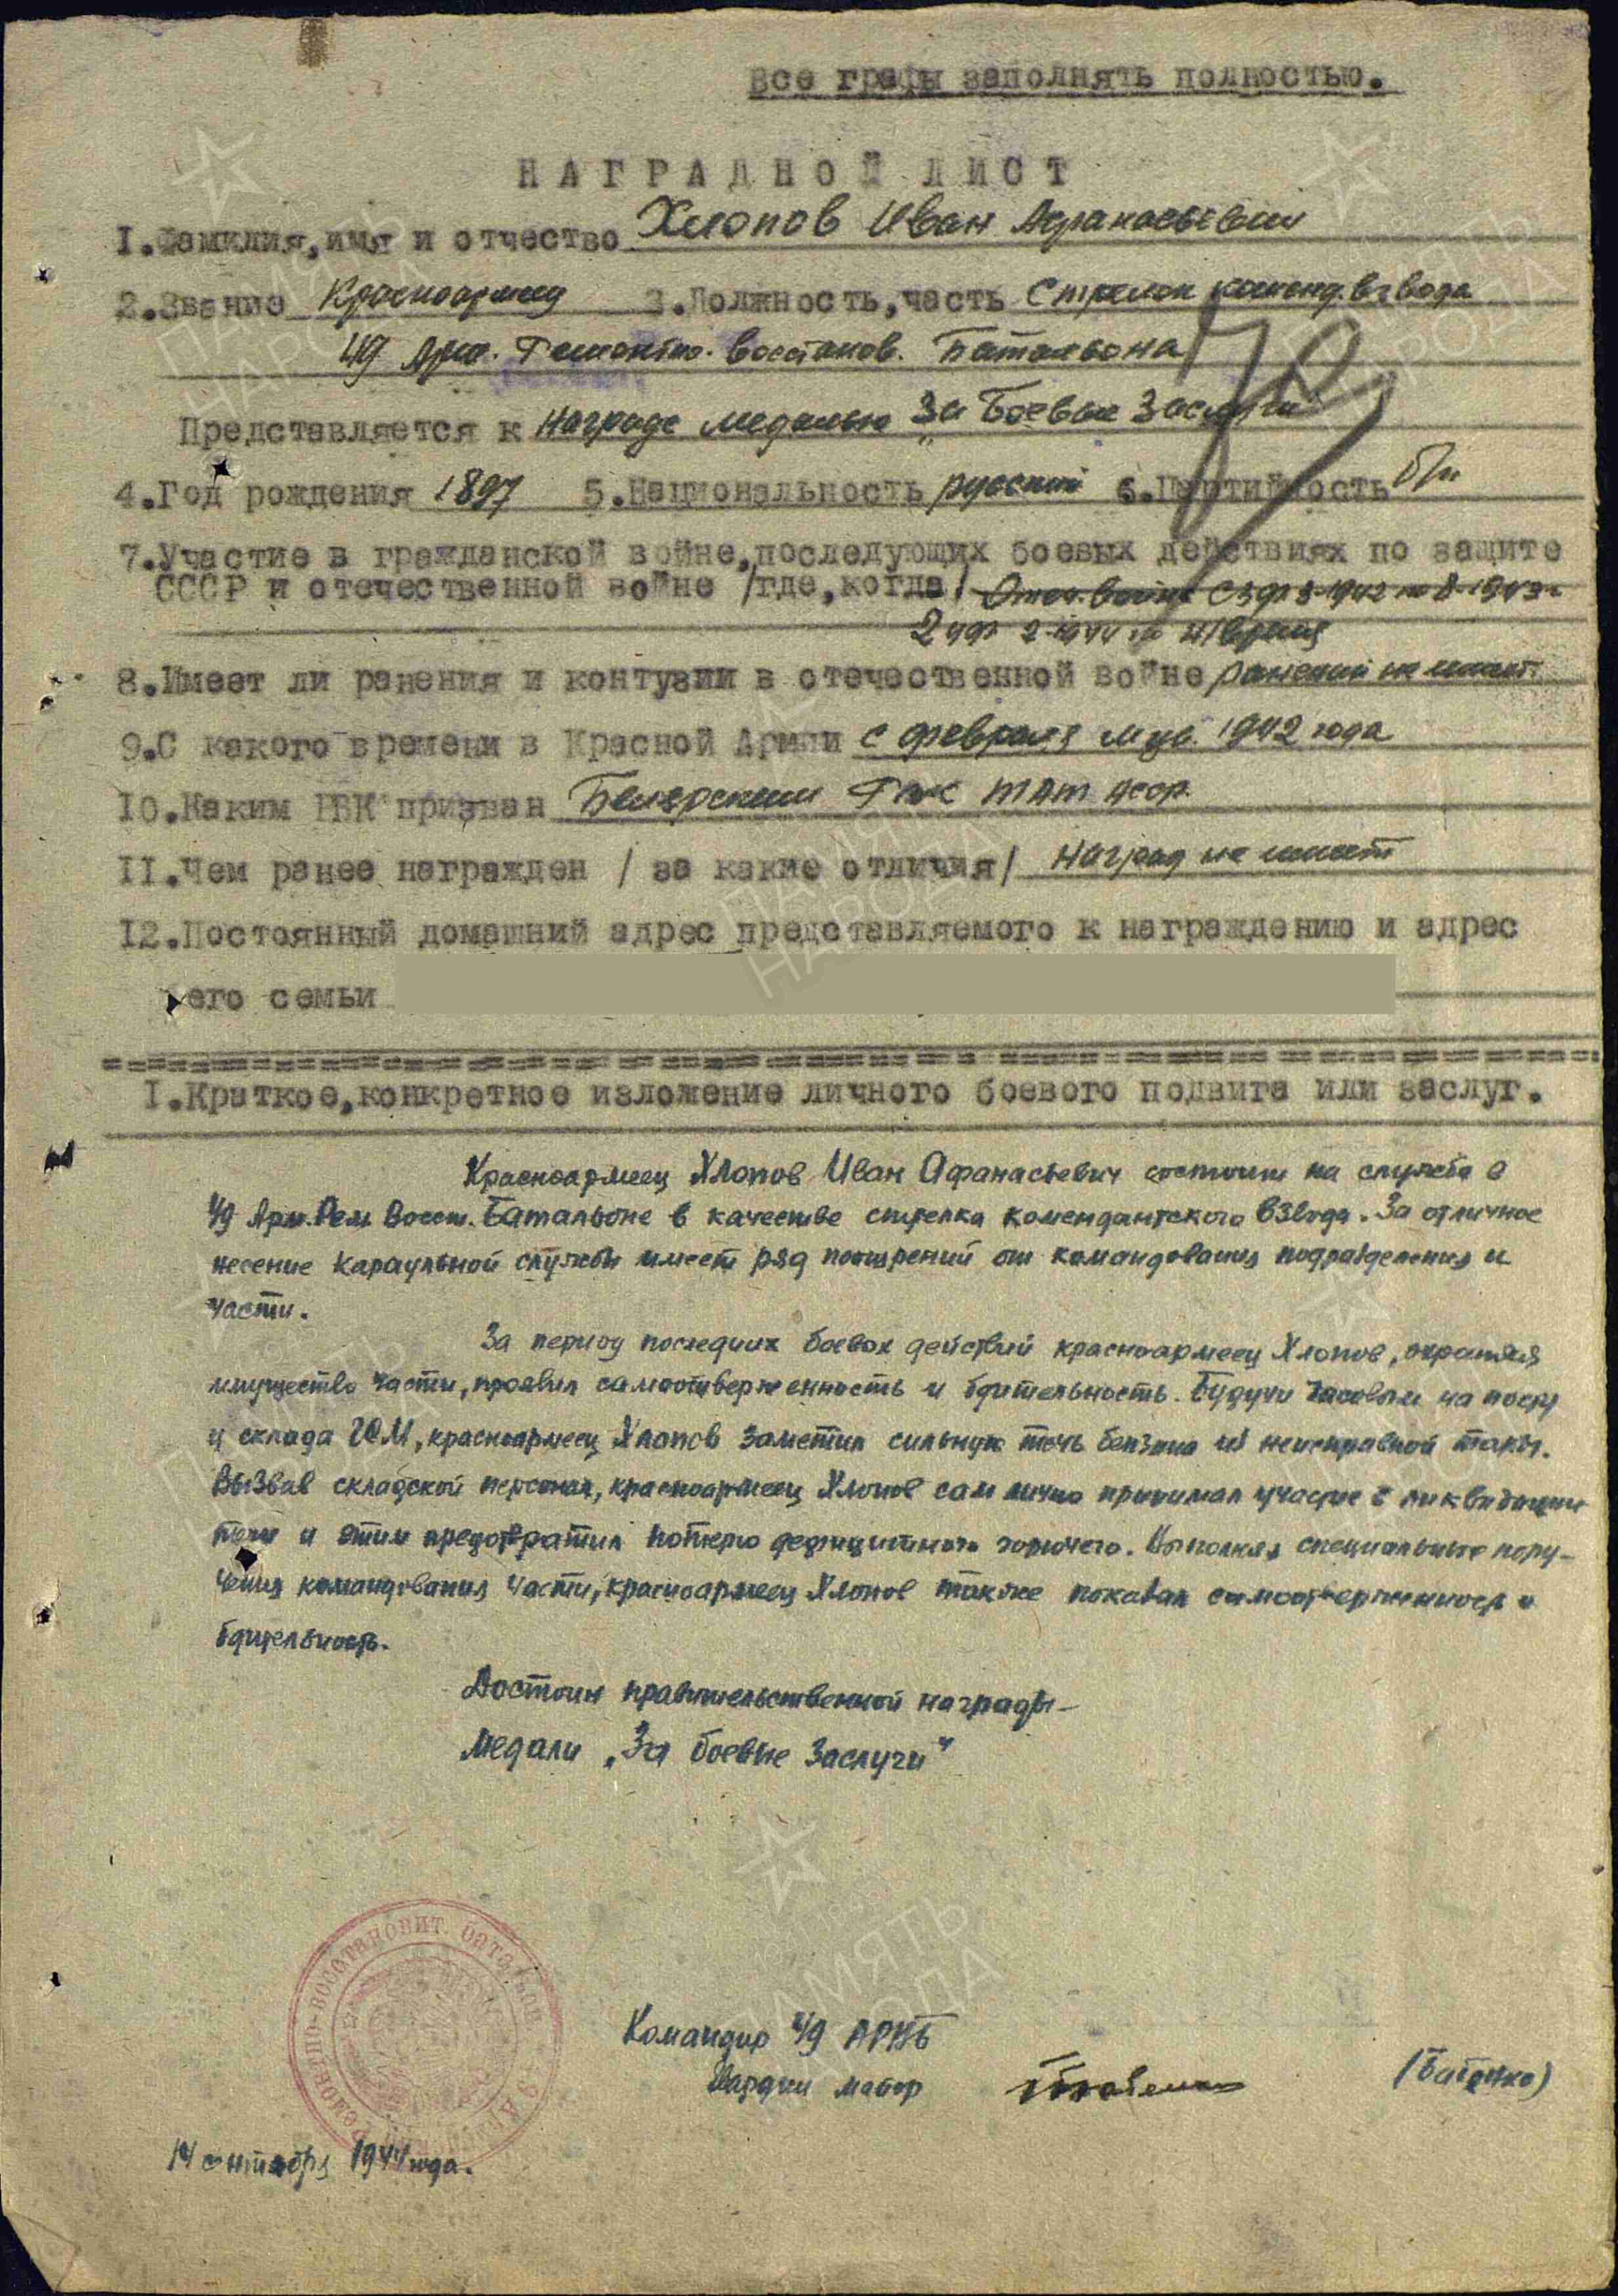 Все графы заполнять полностью.
НАГРАДНОЙ ЛИСТ
1.Фамилия,имя и отчество Хлопов Иван Афанасьевич
2.Звание Красноармеец 3.Должность,часть Стрелок команд. взвода
Арм. Ремонтно. Восстанов. Батальона
Представляется к награде медалью "За Боевые Заслуги"
4.Год рождения 1897 5.Национальность русский 6.Партийность б/п
7.Участие в гражданской войне,последующих боевых действиях по защите
СССР и отечественной войне /где,когда/ Отеч. война 3 1942 по 8-1943г
2 укр 2-1944 по н/время
8.Имеет ли ранения и контузии в отечественной войне ранений не имеет
9.С какого времени в Красной Армии с февраля м-ца 1942 года
10.Каким РВК призван РВК тат АССР.
11.Чем ранее награжден /за какие отличия/ наград не имеет
12.Постоянный домашний адрес представляемого к награждению и адрес
его семьи
1.Краткое,конкретное изложение личного боевого подвига или заслуг.
Красноармеец Хлопов Иван Афанасьевич состоит на службе в
Арм. Рем. Восст. Батальоне в качестве стрелка комендантского взвода. За отличное
несение караульной службы имеет ряд поощрений от командования подразделения и
части.
За период последних боевых действий красноармеец Хлопов, охраняя
имущество части, проявил самоотверженность и бдительность. Будучи часовым на посту
у склада ГСМ, красноармеец Хлопов заметил сильную течь бензина из неисправной тары.
Вызвав складской персонал, красноармеец Хлопов сам лично принимал участие в ликвидации
течи и этим предотвратил потерю дефицитного горючего. Выполняя специальные пору-
чения командования части, красноармеец Хлопов также показал самоотверженность и
бдительность.
Достоин правительственной награды –
медали „За боевые заслуги"
ремонтно-восстановит. батальон
Командир АРВБ
Гвардии майор (Батенко)
14 сентября 1944 года.
ПАМЯТЬ
НАРОДА